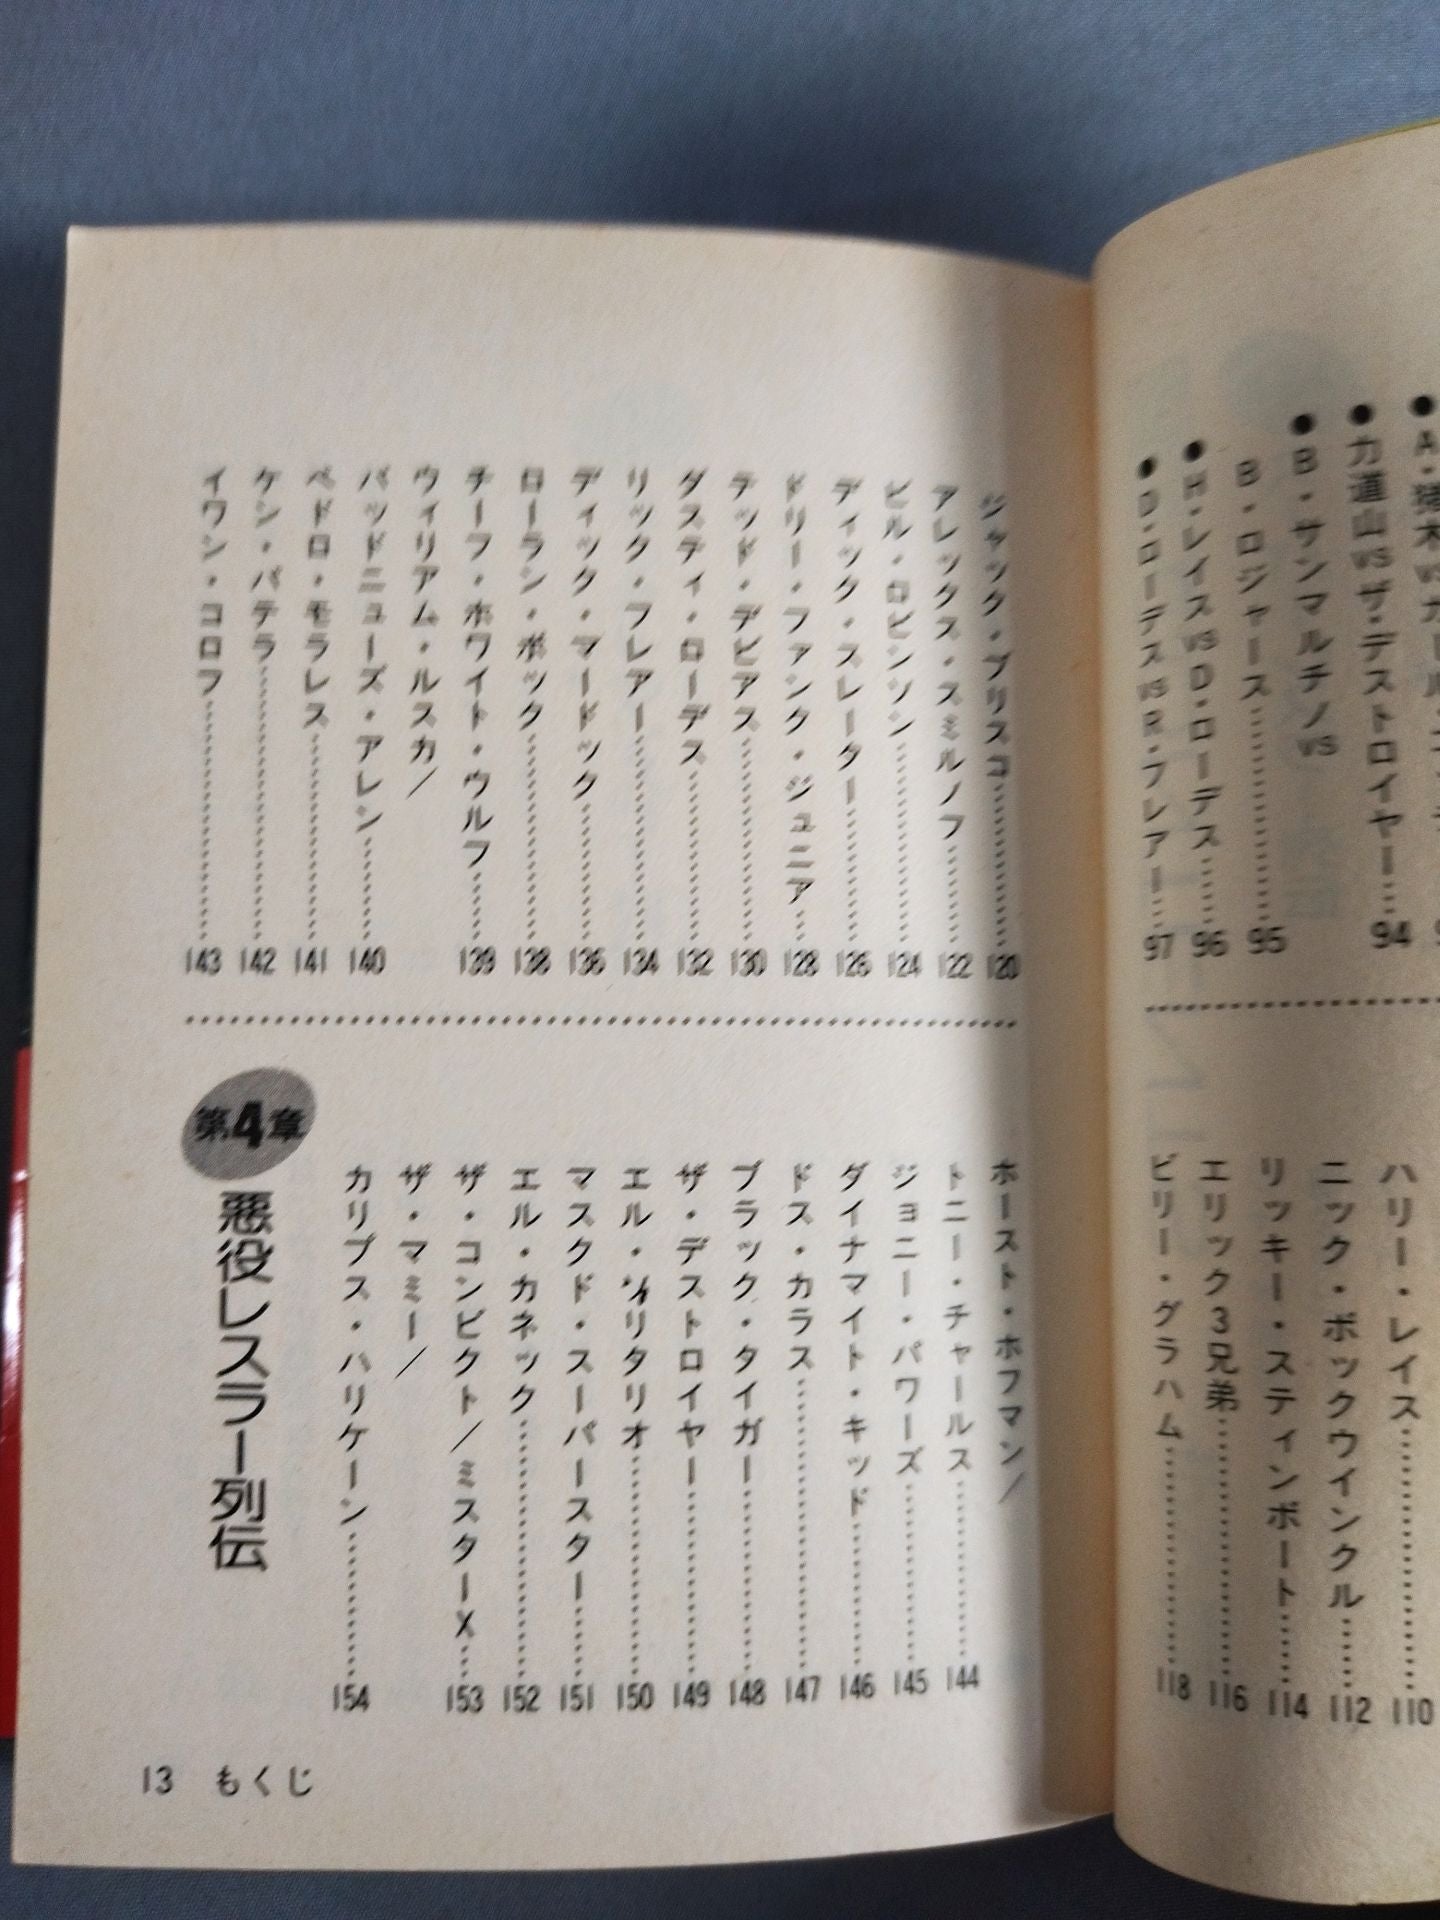 力道山vsザ・デストロイヤー……94
●B・サンマルチノvs
B・ロジャース……………95
●H・レイスvsD・ローデス……96
●D・ローデスvsR・フレアー…97
ハリー・レイス………………110
ニック・ボックウインクル……112
リッキー・スティンボート……114
エリック3兄弟………………116
ビリー・グラハム……………118
ジャック・ブリスコ…………120
アレックス・スミルノフ………122
ビル・ロビンソン……………124
ディック・スレーター…………126
ドリー・ファンク・ジュニア……128
テッド・デビアス……………130
ダスティ・ローデス…………132
リック・フレアー……………134
ディック・マードック…………136
ローラン・ボック……………138
チーフ・ホワイト・ウルフ……139
ウィリアム・ルスカ/
バッドニューズ・アレン………140
ペドロ・モラレス……………141
ケン・パテラ…………………142
イワン・コロフ………………143
ホースト・ホフマン/
トニー・チャールス…………144
ジョニー・パワーズ…………145
ダイナマイト・キッド…………146
ドス・カラス…………………147
ブラック・タイガー…………148
ザ・デストロイヤー…………149
エル・ソリタリオ……………150
マスクド・スーパースター……151
エル・カネック………………152
ザ・コンビクト/ミスターX……153
ザ・マミー/
カリプス・ハリケーン………154
第4章
悪役レスラー列伝
13 もくじ